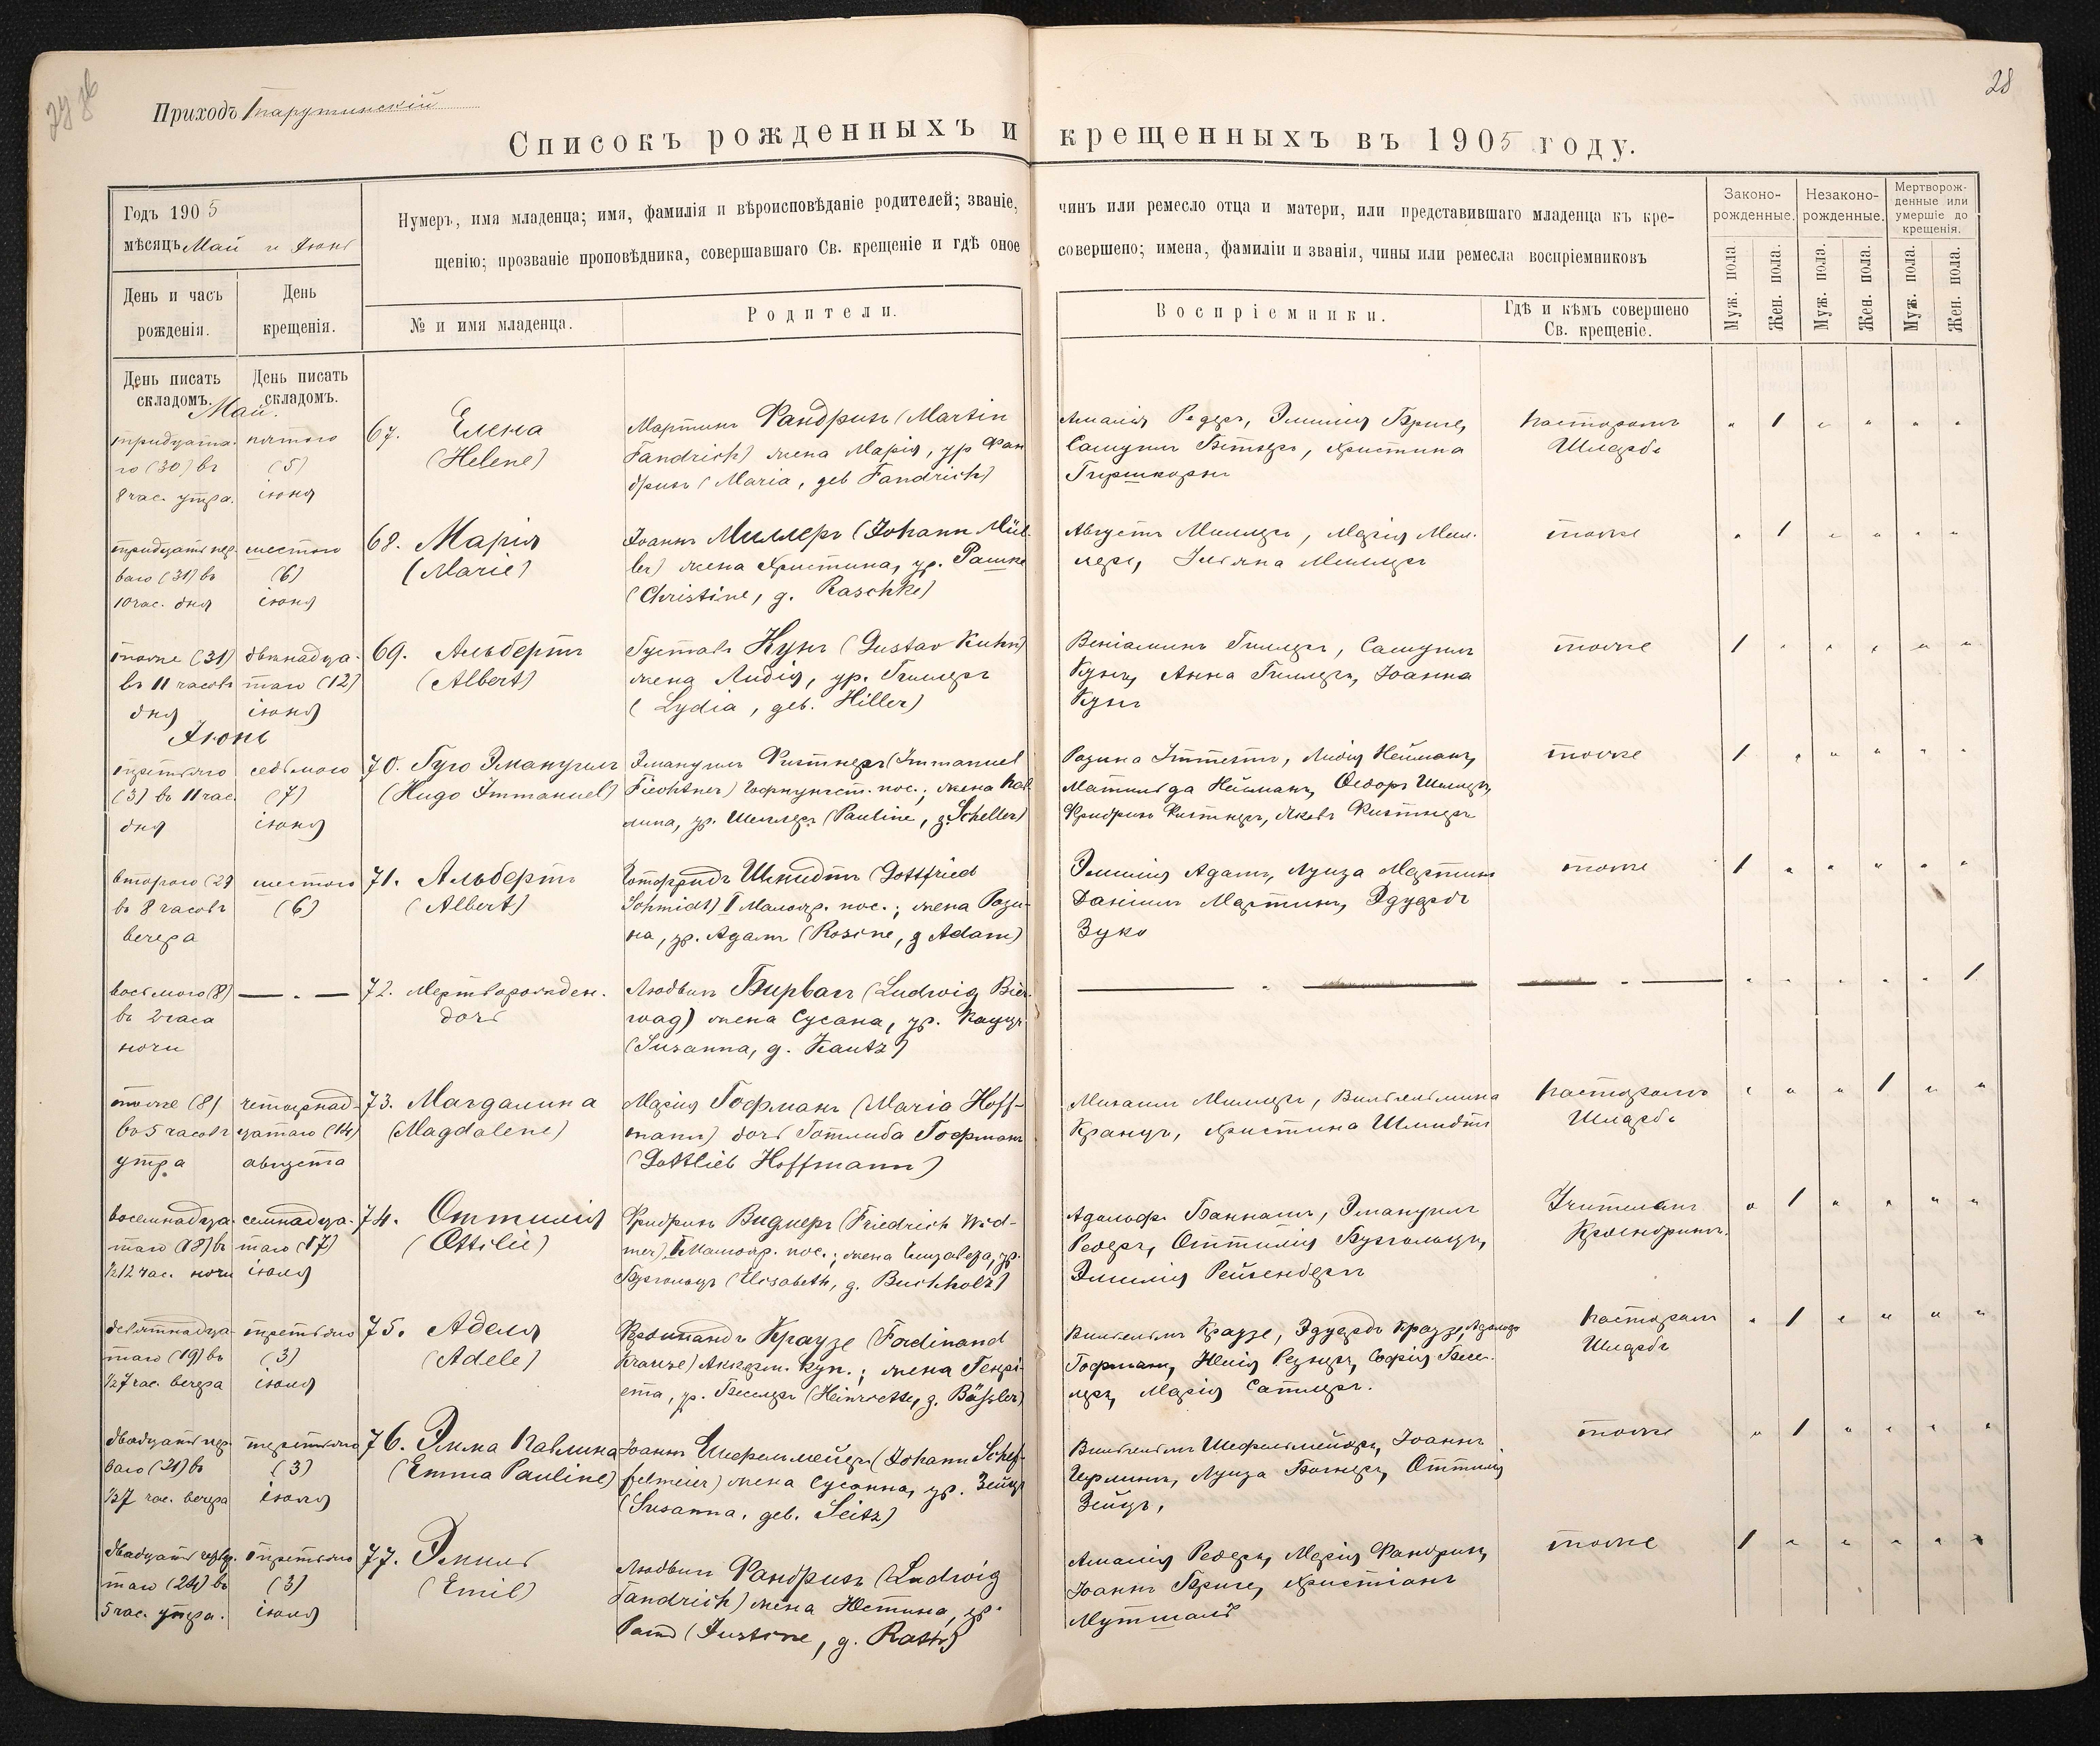 28
Приходъ Тарутинскій
Списокъ рожденныхъ и крещенныхъ въ 1905 году.
Годъ 1905
мѣсяцъ Май и Іюнь
Нумеръ, имя младенца; имя, фамилія и вѣроисповѣданіе родителей; званіе, чинъ или ремесло отца и матери, или представившаго младенца къ кре-
щенію; прозваніе проповѣдника, совершавшаго Св. крещеніе и гдѣ оное совершено; имена, фамиліи и званія, чины или ремесла воспріемниковъ
Законо-
рожденные.
Незаконо-
рожденные.
Мертворож-
денные или
умершіе до
крещенія.
День и часъ
рожденія.
День
крещенія.
№ и имя младенца.
Родители.
Воспріемники.
Гдѣ и кѣмъ совершено
Св. крещеніе.
Муж. пола
Жен. пола.
Муж. пола.
Жен. пола.
Муж. пола.
Жен. пола.
День писать
складомъ.
День писать
складомъ.
Май.
тридцата-
го (30) въ
8 час. утра.
пятого
(5)
іюня
67. Елена
(Helene)
Мартинъ Фандрихъ (Martin
Fandrich) жена Марія, ур Фан
дрихъ (Maria, geb Fandrich)
Амалія Редеръ, Эмилія Бриге,
Самуилъ Битнеръ, Христина
Гиршкорнъ
Пасторомъ
Шилдрбъ
тридцать пер-
ваго (31) въ
10 час. дня
шестого
(6)
іюня
68. Марія
(Marie)
Іоаннъ Миллеръ (Johann Mül-
ler) жена Христина, ур. Рашке
(Christine, g. Raschke)
Августъ Миллеръ, Марія Мил-
леръ, Іульяна Миллеръ
тоже
тоже (31)
въ 11 часовъ
дня
двѣнадца-
таго (12)
іюня
69. Альбертъ
(Albert)
Густавъ Кунъ (Gustav Kuhn)
жена Лидія, ур. Гиллеръ
(Lydia, geb. Hiller)
Веніаминъ Гиллеръ, Самуилъ
Кунъ, Анна Гиллеръ, Іоанна
Кунъ
тоже
Іюнь
третьяго
(3) въ 11 час.
дня
седьмого
(7)
іюня
70. Гуго Эмануилъ
(Hugo Immanuel)
Эмануилъ Фихтнеръ (Immanuel
Fiechtner) пос.; жена Пав-
лина, ур. Шеллеръ (Pauline, g. Scheller)
Розина Лидія Нейманъ,
Матильда Нейманъ, Ѳедоръ Шиллеръ,
Фридрихъ Фихтнеръ, Яковъ Фихтнеръ
тоже
второго (2)
въ 8 часовъ
вечера
шестого
(6)
71. Альбертъ
(Albert)
Готфридъ Шмидтъ (Gottfried
Schmidt) I Малояр. пос.; жена Рози-
на, ур. Адамъ (Rosine, g Adam)
Эмилія Адамъ, Луиза Мартинъ
Даніилъ Мартинъ, Эдуардъ
Зуко
тоже
восьмого (8)
въ 2 часа
ночи
— . —
72. Мертворожден.
дочь
Людвигъ Бирвагъ (Ludwig Bier-
wag) жена Сусана, ур. Кауцъ
(Susanna, g. Kautz)
тоже (8)
въ 5 часовъ
утра
четырнад-
цатаго (14)
августа
73. Магдалина
(Magdalene)
Марія Гофманъ (Maria Hoff-
mann) дочь Готлиба Гофманъ
(Gottlieb Hoffmann)
Михаилъ Миллеръ, Вильгельмина
Кранцъ, Христина Шмидтъ
Пасторомъ
Шилдрбъ
восемнадца-
таго (18) въ
½12 час. ночи
семнадца-
таго (17)
іюля
74. Оттилія
(Ottilie)
Фридрихъ Видмеръ (Friedrich Wid-
mer) I Малояр. пос.; жена Елизавета, ур.
Бухгольцъ (Elisabeth, g. Buchholz)
Адольфъ Банманъ, Эмануилъ
Редеръ, Оттилія Бухгольцъ,
Эмилія Рейзенбергъ
Учителемъ
девятнадца-
таго (19) въ
½7 час. вечера
третьяго
(3)
іюля
75. Аделя
(Adele)
Фердинандъ Краузе (Ferdinand
Krause) Аккерм. куп.; жена Генрі-
ета, ур. Беслеръ (Heinriette, g. Bäßler)
Вильгельмъ Краузе, Эдуардъ Краузе, Адольфъ
Гофманъ, Юлія Редеръ, Софія Бес-
леръ, Марія Сатлеръ.
Пасторомъ
Шилдрбъ
двадцать пер-
ваго (21) въ
½7 час. вечера
третьяго
(3)
іюля
76. Эмма Павлина
(Emma Pauline)
Іоаннъ Шефельмейеръ (Johann Schef-
felmeier) жена Сусанна, ур. Зейцъ
(Susanna, geb. Seitz)
Вильгельмъ Шефельмейеръ, Іоаннъ
Луиза Оттилія
Зейцъ,
тоже
двадцать четвер-
таго (24) въ
5 час. утра.
третьяго
(3)
іюля
77. Эмиль
(Emil)
Людвигъ Фандрихъ (Ludwig
Fandrich) жена Юстина, ур.
Ратъ (Justine, g. Rath)
Амалія Редеръ, Марія Фандрихъ,
Іоаннъ Бриге, Христіанъ
Мутшалъ
тоже